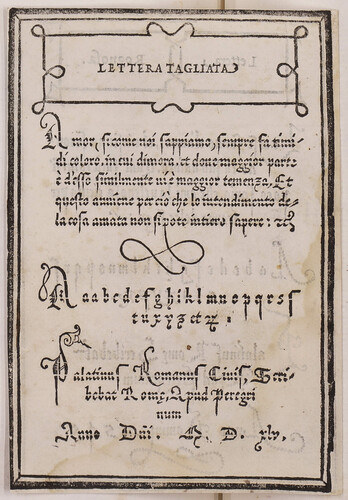 LETTERA TAGLIATA
Amor, si come noi sappiamo, sempre fa timi-
di coloro, in cui dimora, et doue maggior parte
è d'esso similmente ui è maggior temenza, Et
questo auuiene per ciò che lo intendimento de-
la cosa amata non si pote intiero sapere:
A a a b c d e f g h i k l m n o p q r e s s
t u x y z et
Palatinus Romanus Ciuis, Scri-
bebat Romę, Apud Peregri
num
Anno Dñi. M. D. xlv.